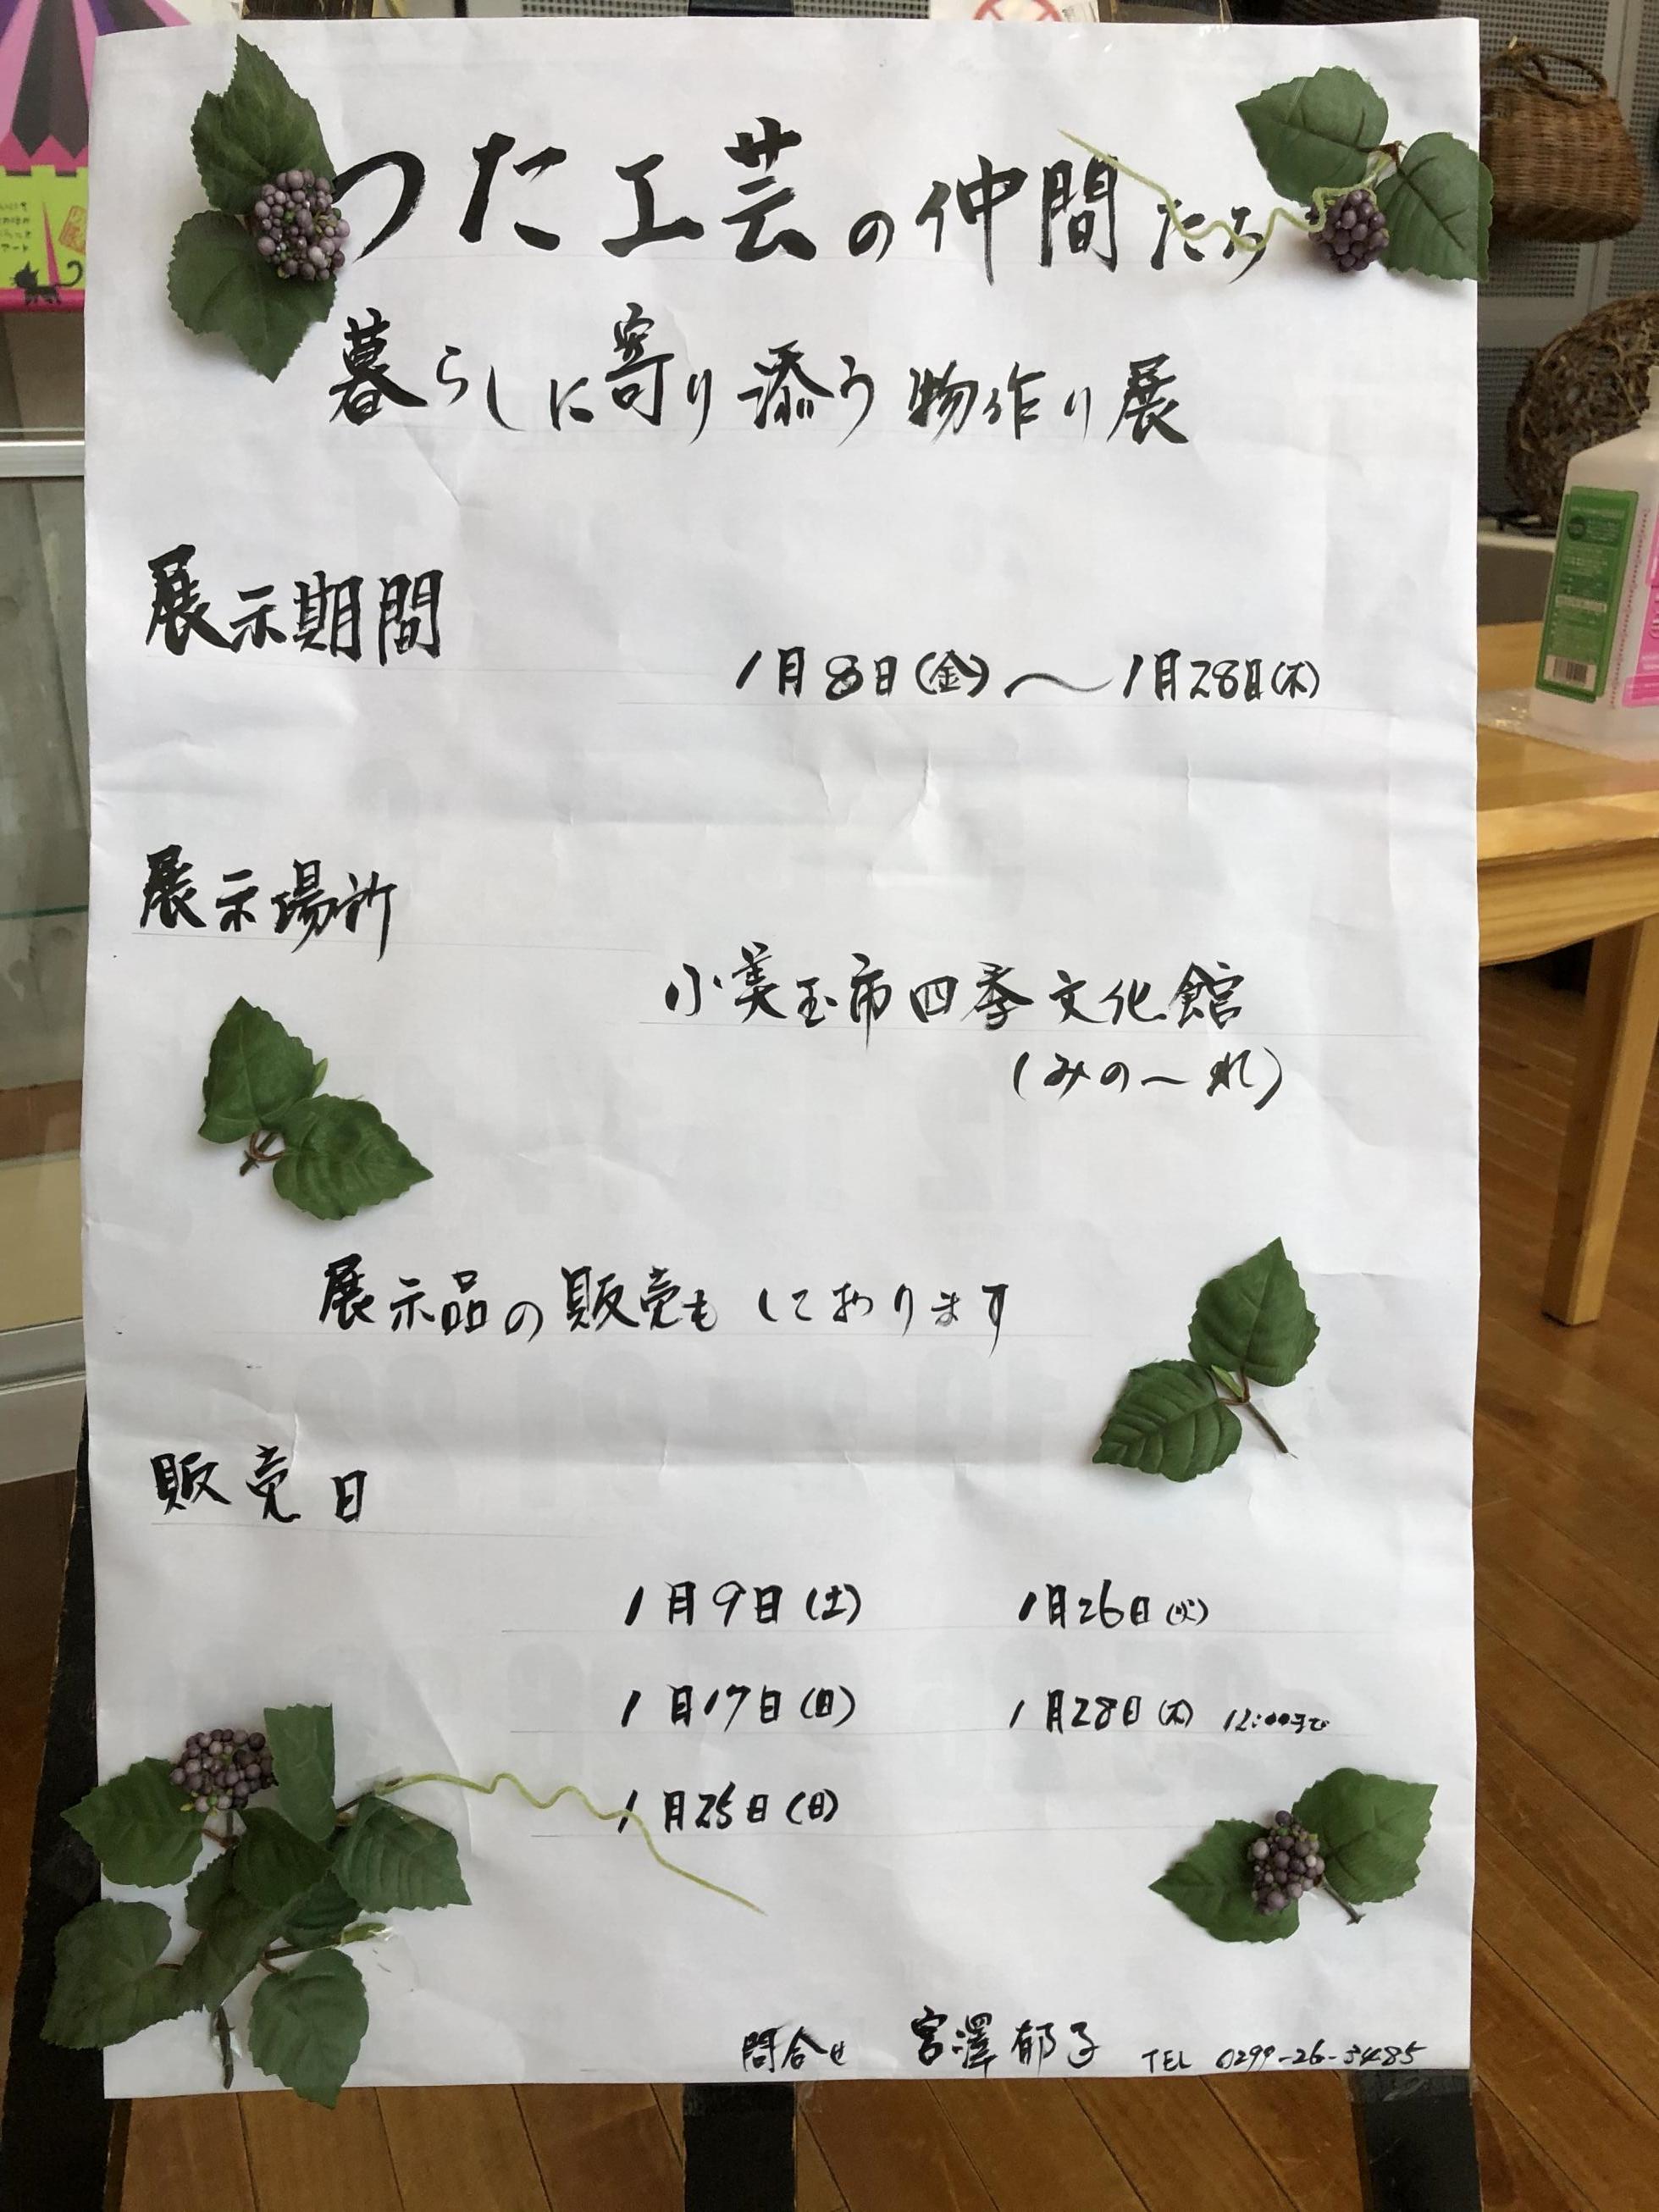 つた工芸の仲間たち
暮らしに寄り添う物作り展
展示期間
1月8日(金)〜1月28日(木)
展示場所
小美玉市四季文化館
(みの〜れ)
展示品の販売もしております
販売日
1月9日(土) 1月26日(火)
1月17日(日) 1月28日(木) 12:00まで
1月25日(日)
問合せ 宮澤郁子 TEL 0299-26-3485